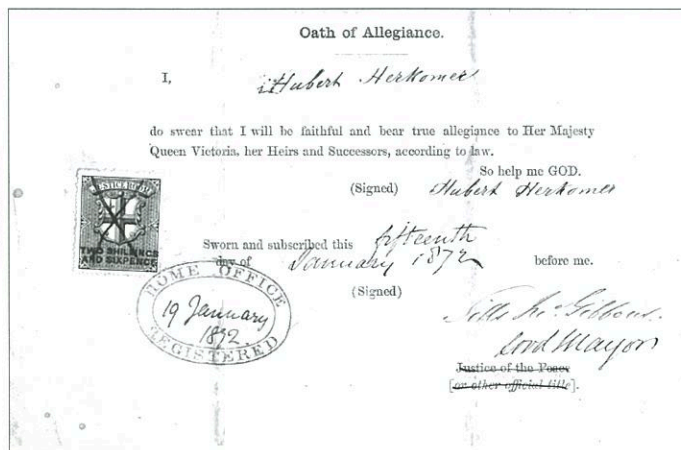 Oath of Allegiance.
I, Hubert Herkomer
do swear that I will be faithful and bear true allegiance to Her Majesty
Queen Victoria, her Heirs and Successors, according to law.
So help me GOD.
(Signed) Hubert Herkomer
TWO SHILLINGS
AND SIXPENCE
Sworn and subscribed this fifteenth
day of January 1872 before me.
(Signed)
Gibbons.
Lord Mayor
Justice of the Peace
[or other official title].
HOME OFFICE
19 January
1872.
REGISTERED